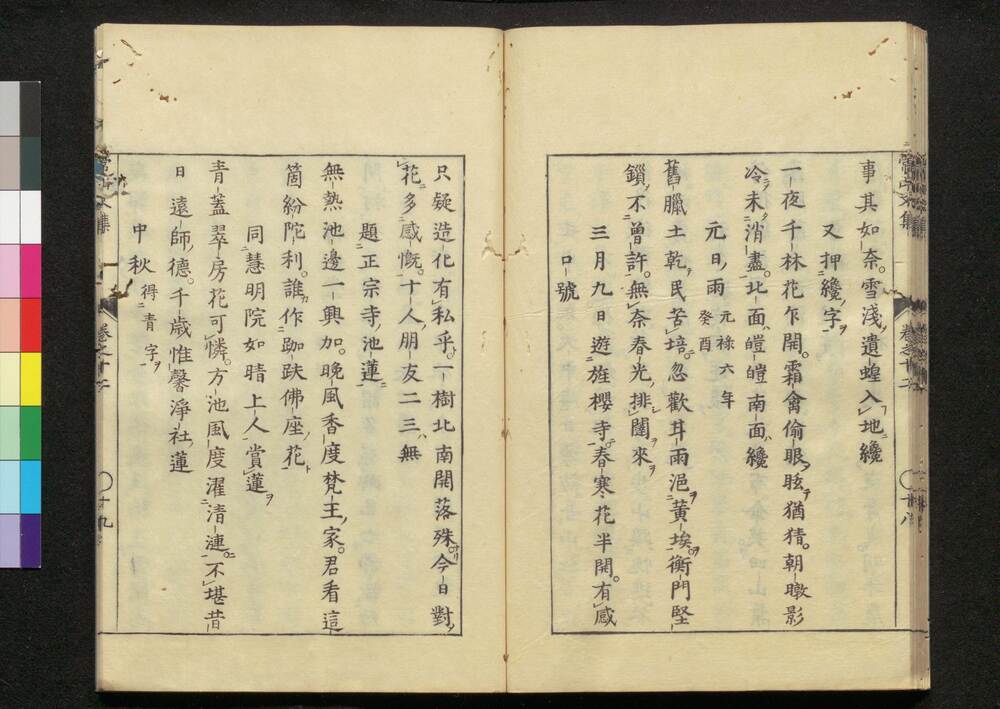 事其如奈。雪淺遺蝗入地纔
又押纔字
一夜千林花乍開。霜禽偷眼眩猶猜。朝暾影
冷未消盡。北面皚皚南面纔
元日雨 元祿六年癸酉
舊臘土乾民苦培。忽歡甘雨浥黃埃。衡門堅
鎖不曾許。無奈春光排闥來
三月九日遊旌櫻寺。春寒花半開。有感
口號
只疑造化有私乎。一樹北南開落殊。今日對
花多感慨。十人朋友二三無
題正宗寺池蓮
無熱池邊一興加。晚風香度梵王家。君看這
箇紛陀利。誰作跏趺佛座花
同慧明院如晴上人賞蓮
青蓋翠房花可憐。方池風度濯清漣。不堪昔
日遠師德。千歲惟馨淨社蓮
中秋 得青字